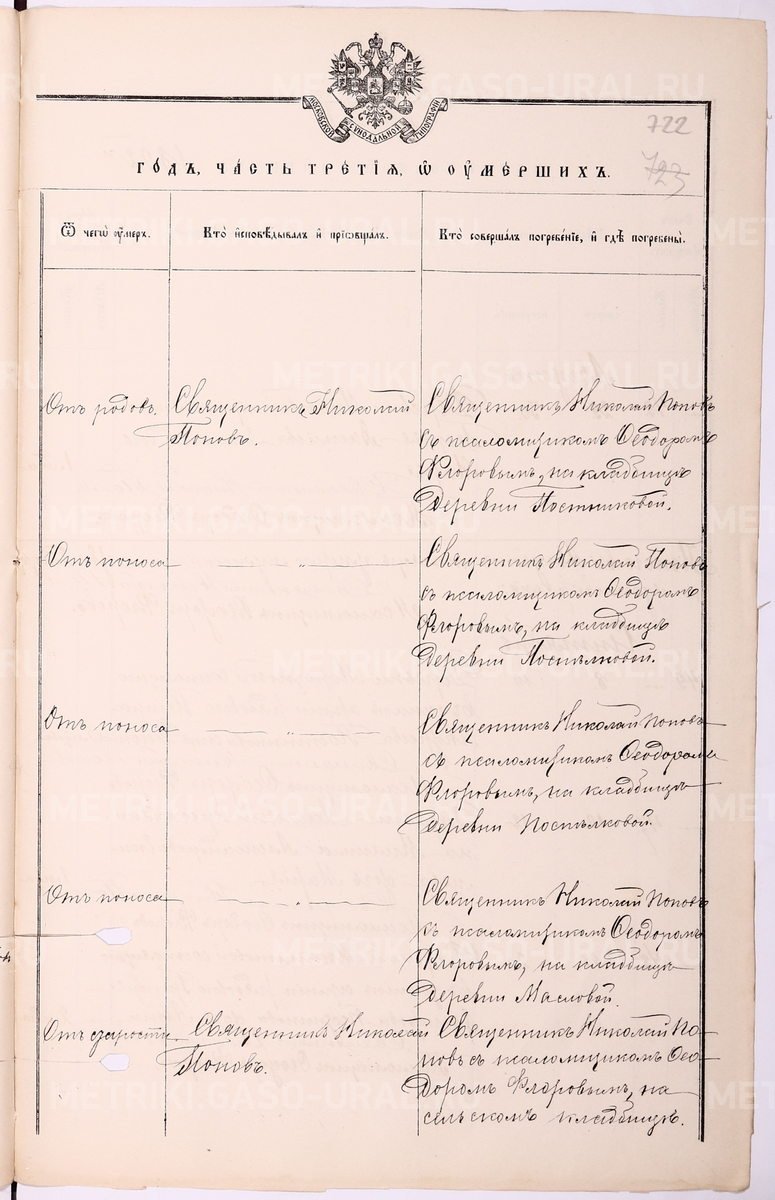 МОСКОВСКОЙ СѴНОДАЛЬНОЙ ТИПОГРАФІИ
722
723
ГО́ДЪ, ЧА́СТЬ ТРЕ́ТІЯ, Ѿ ОУ҆МЕ́РШИХЪ.
Ѿ чегѡ̀ оу҆́меръ.
Кто̀ и҆сповѣ́дывалъ и҆ прїѡбща́лъ.
Кто̀ соверша́лъ погребе́нїе, и҆ гдѣ̀ погребены̀.
Отъ родовъ.
Священникъ Николай
Поповъ.
Священникъ Николай Поповъ
съ псаломщикомъ Ѳеодоромъ
Флоровымъ, на кладбищѣ
Деревни Постниковой.
Отъ поноса
— „ —
Священникъ Николай Поповъ
съ псаломщикомъ Ѳеодоромъ
Флоровымъ, на кладбищѣ
Деревни Постѣлковой.
Отъ поноса
— „ —
Священникъ Николай Поповъ
съ псаломщикомъ Ѳеодоромъ
Флоровымъ, на кладбищѣ
Деревни Постѣлковой.
Отъ поноса
— „ —
Священникъ Николай Поповъ
съ псаломщикомъ Ѳеодоромъ
Флоровымъ, на кладбищѣ
Деревни Масловой.
Отъ старости.
Священникъ Николай
Поповъ.
Священникъ Николай По-
повъ съ псаломщикомъ Ѳео-
доромъ Флоровымъ, на
сельскомъ кладбищѣ.
METRIKI.GASO-URAL.RU